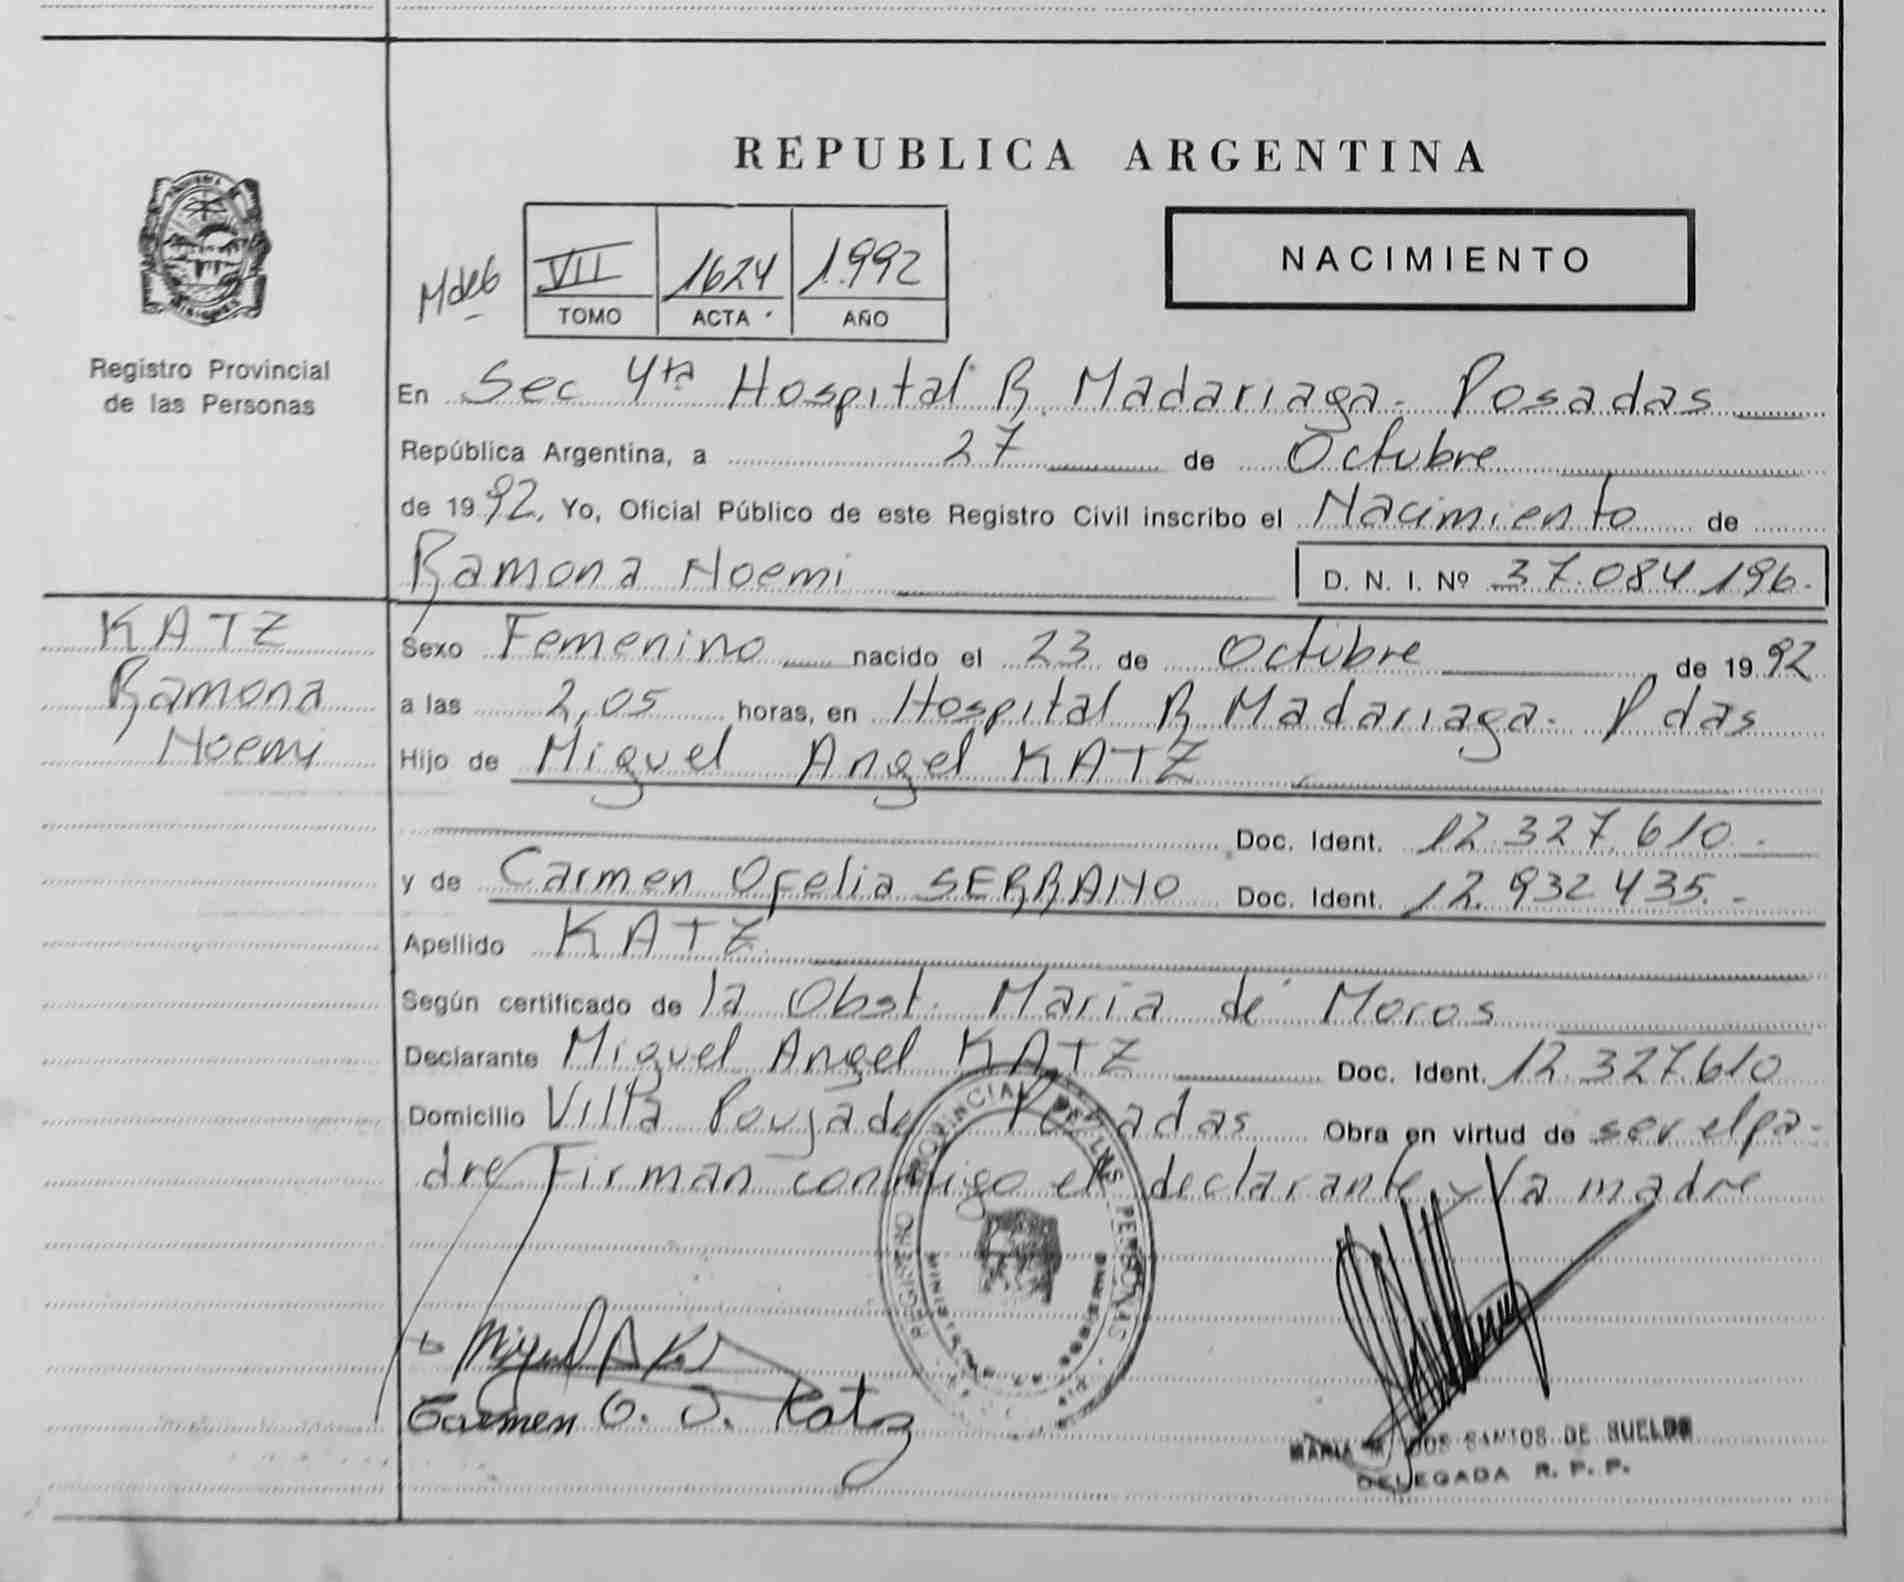 REPUBLICA ARGENTINA
VII 1624 1.992
TOMO ACTA AÑO
NACIMIENTO
Registro Provincial
de las Personas
En Sec 4ta Hospital R. Madariaga. Posadas
República Argentina, a 27 de Octubre
de 1992, Yo, Oficial Público de este Registro Civil inscribo el Nacimiento de
Ramona Noemi D. N. I. Nº 37.084.196.
KATZ
Ramona
Noemi
Sexo Femenino nacido el 23 de Octubre de 1992
a las 2,05 horas, en Hospital R Madariaga. Pdas
Hijo de Miguel Angel KATZ
Doc. Ident. 12.327.610.-
y de Carmen Ofelia SERRANO Doc. Ident. 12.932.435.-
Apellido KATZ
Según certificado de la Obst. Maria de Moros
Declarante Miguel Angel KATZ Doc. Ident. 12.327.610
Domicilio Villa Poujade Posadas Obra en virtud de ser el pa-
dre Firman conmigo el declarante y la madre
REGISTRO PROVINCIAL DE LAS PERSONAS
Miguel A K
Carmen O. S. Katz
MARIA M. DOS SANTOS DE SUELDO
DELEGADA R. P. P.